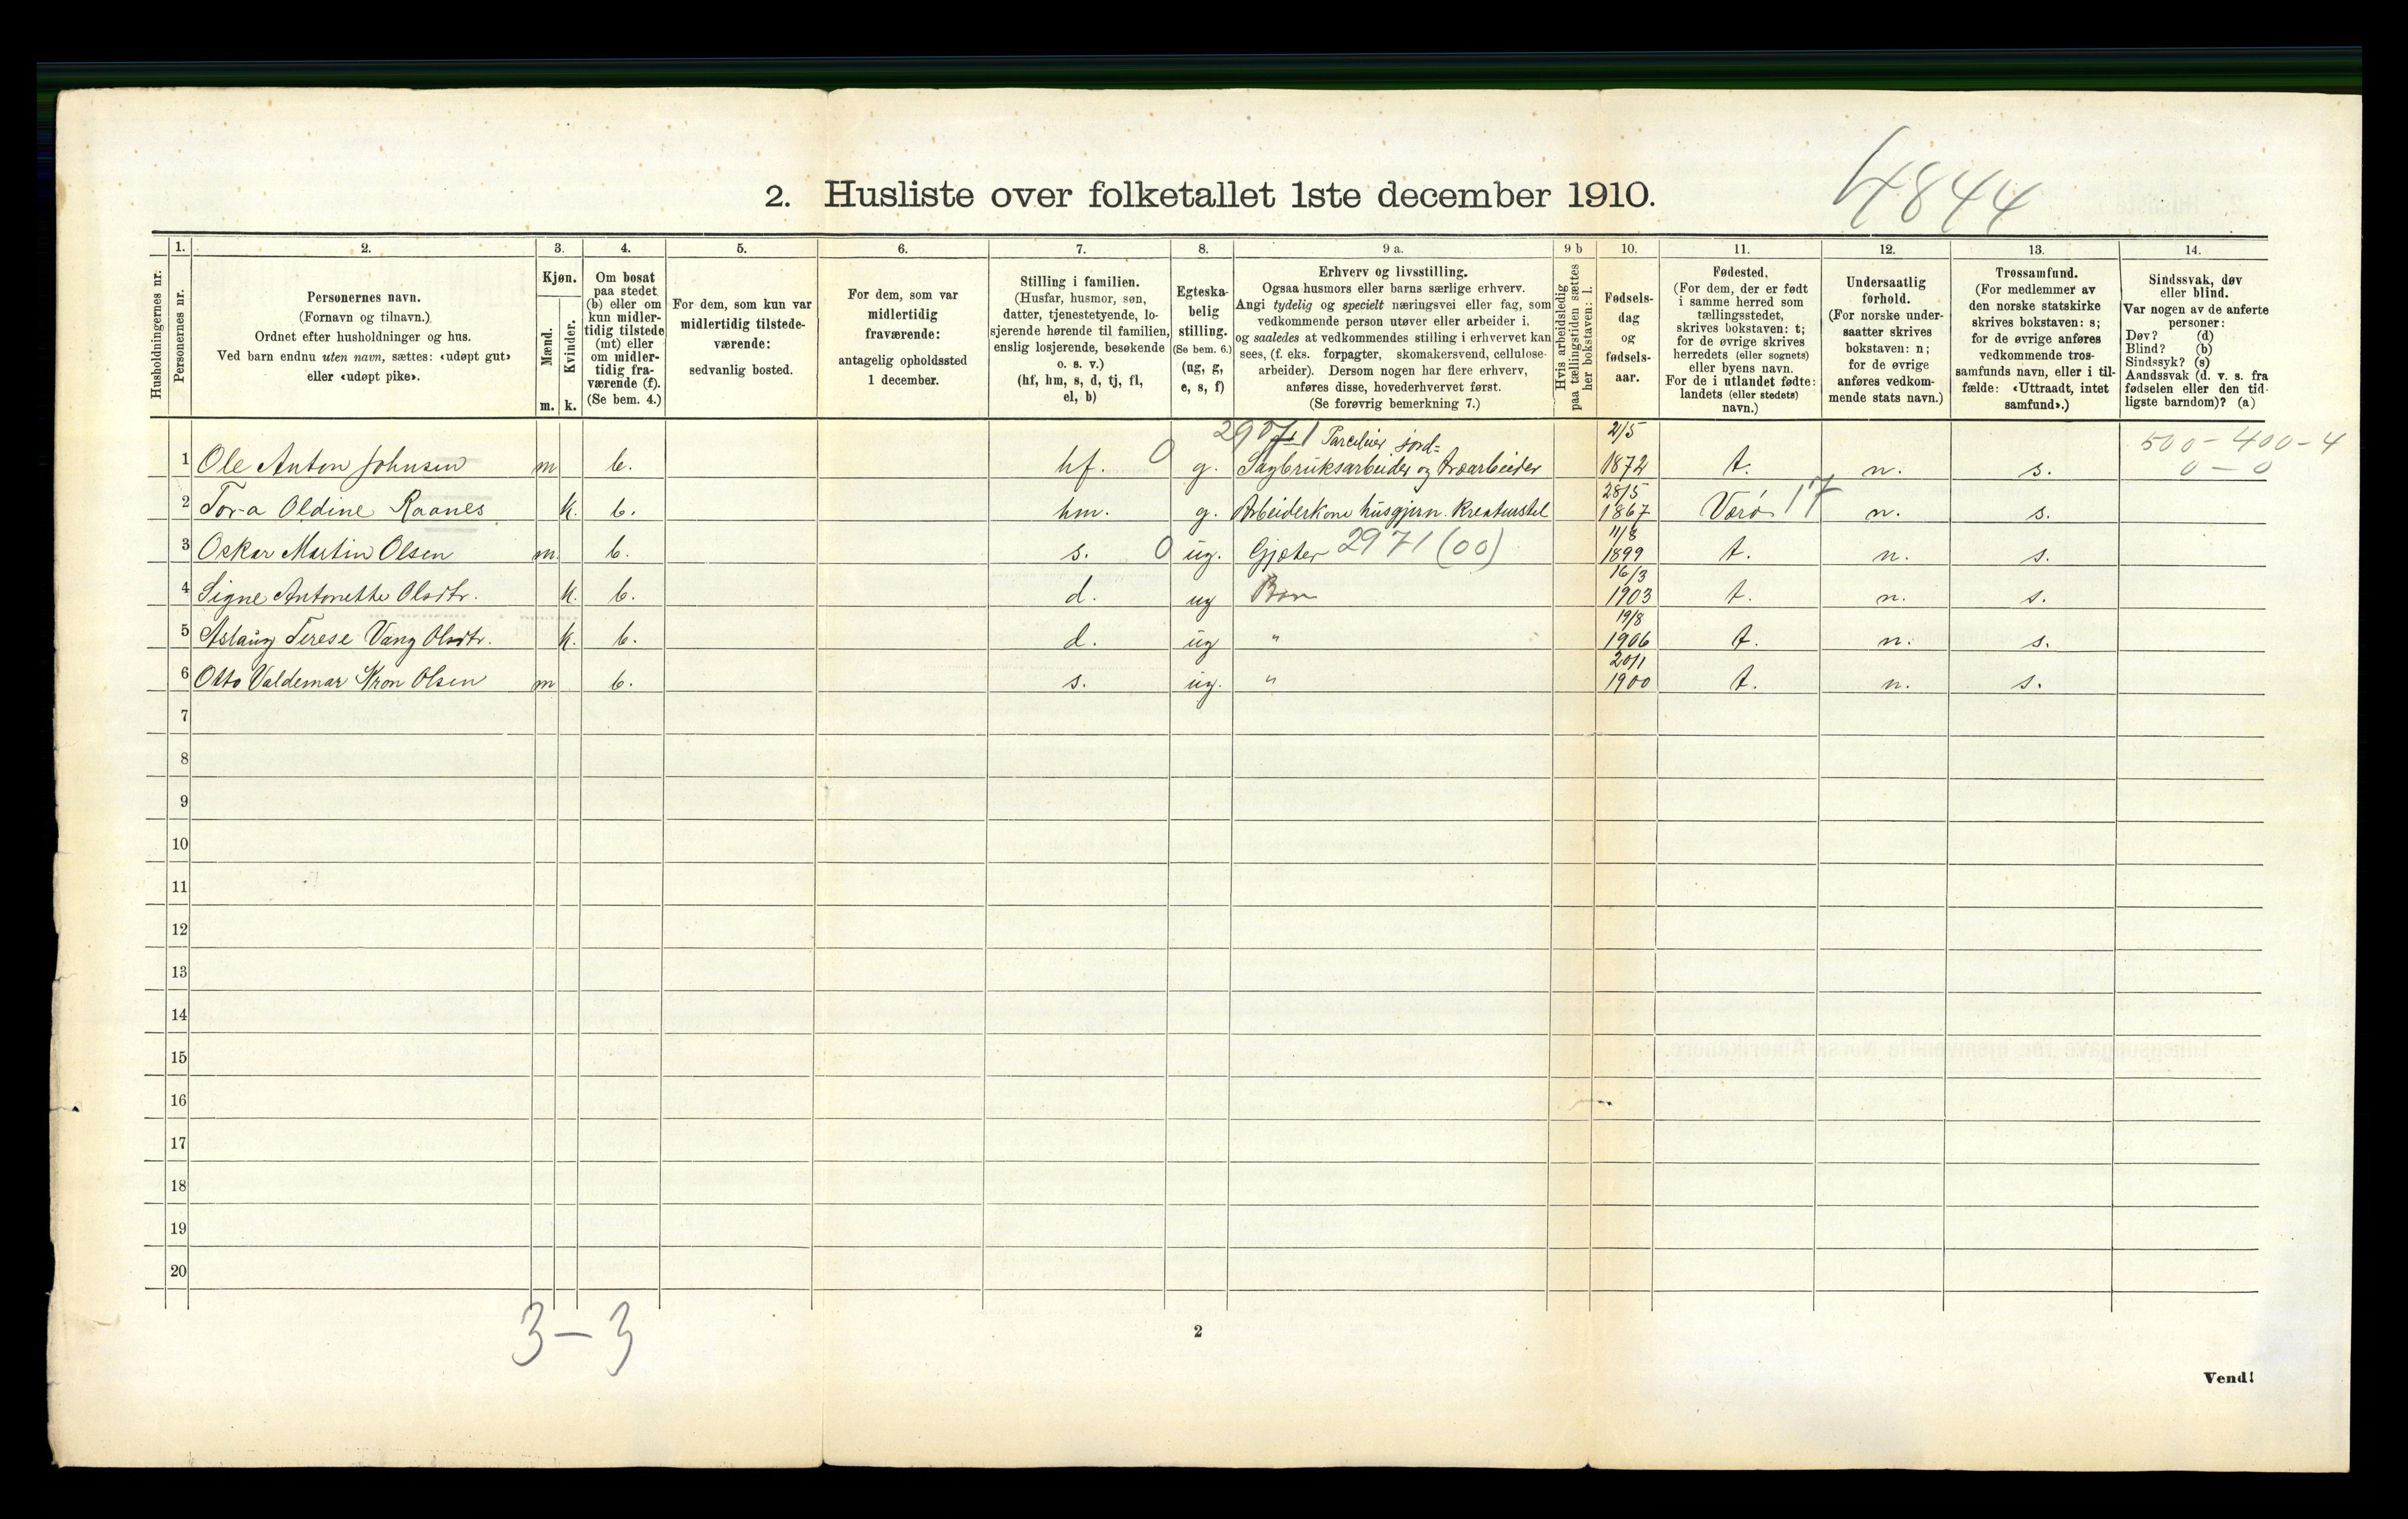 2. Husliste over folketallet 1ste december 1910.
4844
1. 2. 3. 4. 5. 6. 7. 8. 9 a. 9 b 10. 11. 12. 13. 14.
Husholdningernes nr.
Personernes nr.
Personernes navn.
(Fornavn og tilnavn.)
Ordnet efter husholdninger og hus.
Ved barn endnu uten navn, sættes: «udøpt gut»
eller «udøpt pike».
Kjøn.
Mænd.
Kvinder.
m. k.
Om bosat
paa stedet
(b) eller om
kun midler-
tidig tilstede
(mt) eller
om midler-
tidig fra-
værende (f).
(Se bem. 4.)
For dem, som kun var
midlertidig tilstede-
værende:
sedvanlig bosted.
For dem, som var
midlertidig
fraværende:
antagelig opholdssted
1 december.
Stilling i familien.
(Husfar, husmor, søn,
datter, tjenestetyende, lo-
sjerende hørende til familien,
enslig losjerende, besøkende
o. s. v.)
(hf, hm, s, d, tj, fl,
el, b)
Egteska-
belig
stilling.
(Se bem. 6.)
(ug, g,
e, s, f)
Erhverv og livsstilling.
Ogsaa husmors eller barns særlige erhverv.
Angi tydelig og specielt næringsvei eller fag, som
vedkommende person utøver eller arbeider i,
og saaledes at vedkommendes stilling i erhvervet kan
sees, (f. eks. forpagter, skomakersvend, cellulose-
arbeider). Dersom nogen har flere erhverv,
anføres disse, hovederhvervet først.
(Se forøvrig bemerkning 7.)
Hvis arbeidsledig
paa tællingstiden sættes
her bokstaven: l.
Fødsels-
dag
og
fødsels-
aar.
Fødested.
(For dem, der er født
i samme herred som
tællingsstedet,
skrives bokstaven: t;
for de øvrige skrives
herredets (eller sognets)
eller byens navn.
For de i utlandet fødte:
landets (eller stedets)
navn.)
Undersaatlig
forhold.
(For norske under-
saatter skrives
bokstaven: n;
for de øvrige
anføres vedkom-
mende stats navn.)
Trossamfund.
(For medlemmer av
den norske statskirke
skrives bokstaven: s;
for de øvrige anføres
vedkommende tros-
samfunds navn, eller i til-
fælde: «Uttraadt, intet
samfund».)
Sindssvak, døv
eller blind.
Var nogen av de anførte
personer:
Døv? (d)
Blind? (b)
Sindssyk? (s)
Aandssvak (d. v. s. fra
fødselen eller den tid-
ligste barndom)? (a)
Parcelier jord= 2/5 500-400-4
1 Ole Anton Johnsen m b. hf. 0 g. Sagbruksarbeider og træarbeider 1872 t. n. s. 0-0
28/5
2 Tora Oldine Raanes k. b. hm. g. Arbeiderkone husgjern. Kreaturstel 1867 Værö 17 n. s.
11/8
3 Oskar Martin Olsen m. b. s. 0 ug. Gjæter 2971 (00) 1899 t. n. s.
16/3
4 Signe Antonette Olsdtr. k. b. d. ug Barn 1903 t. n. s.
19/8
5 Aslaug Terese Vang Olsdtr. k. b. d. ug " 1906 t. n. s.
20/1
6 Otto Valdemar Kron Olsen m b. s. ug. " 1900 t. n. s.
7
8
9
10
11
12
13
14
15
16
17
18
19
20
3-3
2
Vend!